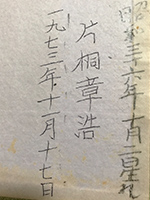 昭和三六年十月二日生れ
片桐章浩
一九七三年十一月十七日